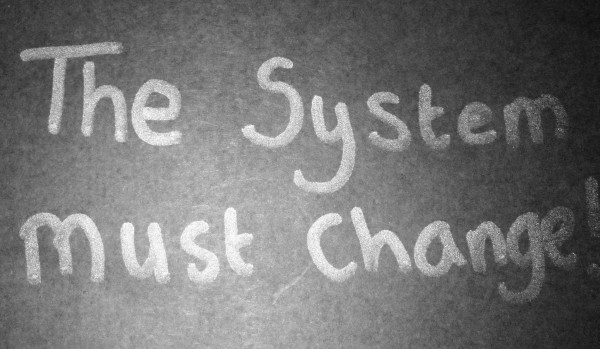 The System
must change!